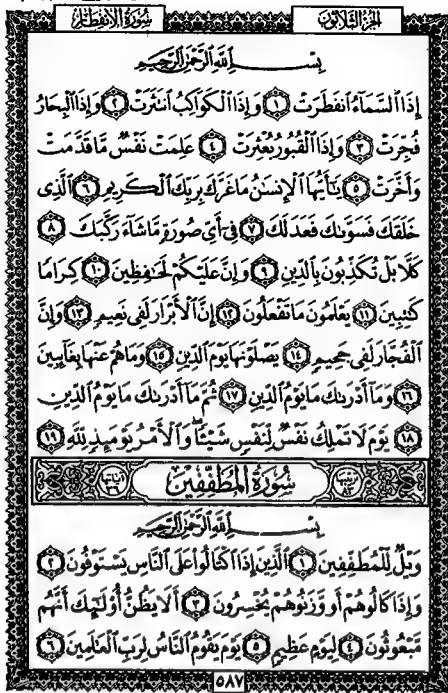 سُورَةُ الانفِطَارِ الجُزْءُ الثَّلَاثُونَ
بِسْمِ اللَّهِ الرَّحْمَٰنِ الرَّحِيمِ
إِذَا ٱلسَّمَآءُ ٱنفَطَرَتْ ١ وَإِذَا ٱلْكَوَاكِبُ ٱنتَثَرَتْ ٢ وَإِذَا ٱلْبِحَارُ
فُجِّرَتْ ٣ وَإِذَا ٱلْقُبُورُ بُعْثِرَتْ ٤ عَلِمَتْ نَفْسٌ مَّا قَدَّمَتْ
وَأَخَّرَتْ ٥ يَٰٓأَيُّهَا ٱلْإِنسَٰنُ مَا غَرَّكَ بِرَبِّكَ ٱلْكَرِيمِ ٦ ٱلَّذِى
خَلَقَكَ فَسَوَّىٰكَ فَعَدَلَكَ ٧ فِىٓ أَىِّ صُورَةٍ مَّا شَآءَ رَكَّبَكَ ٨
كَلَّا بَلْ تُكَذِّبُونَ بِٱلدِّينِ ٩ وَإِنَّ عَلَيْكُمْ لَحَٰفِظِينَ ١٠ كِرَامًا
كَٰتِبِينَ ١١ يَعْلَمُونَ مَا تَفْعَلُونَ ١٢ إِنَّ ٱلْأَبْرَارَ لَفِى نَعِيمٍ ١٣ وَإِنَّ
ٱلْفُجَّارَ لَفِى جَحِيمٍ ١٤ يَصْلَوْنَهَا يَوْمَ ٱلدِّينِ ١٥ وَمَا هُمْ عَنْهَا بِغَآئِبِينَ
١٦ وَمَآ أَدْرَىٰكَ مَا يَوْمُ ٱلدِّينِ ١٧ ثُمَّ مَآ أَدْرَىٰكَ مَا يَوْمُ ٱلدِّينِ
١٨ يَوْمَ لَا تَمْلِكُ نَفْسٌ لِّنَفْسٍ شَيْـًٔا وَٱلْأَمْرُ يَوْمَئِذٍ لِّلَّهِ ١٩
ترتيبها ٨٣ سُورَةُ المُطَفِّفِينَ آياتها ٣٦
بِسْمِ اللَّهِ الرَّحْمَٰنِ الرَّحِيمِ
وَيْلٌ لِّلْمُطَفِّفِينَ ١ ٱلَّذِينَ إِذَا ٱكْتَالُوا۟ عَلَى ٱلنَّاسِ يَسْتَوْفُونَ ٢
وَإِذَا كَالُوهُمْ أَو وَّزَنُوهُمْ يُخْسِرُونَ ٣ أَلَا يَظُنُّ أُو۟لَٰٓئِكَ أَنَّهُم
مَّبْعُوثُونَ ٤ لِيَوْمٍ عَظِيمٍ ٥ يَوْمَ يَقُومُ ٱلنَّاسُ لِرَبِّ ٱلْعَٰلَمِينَ ٦
٥٨٧